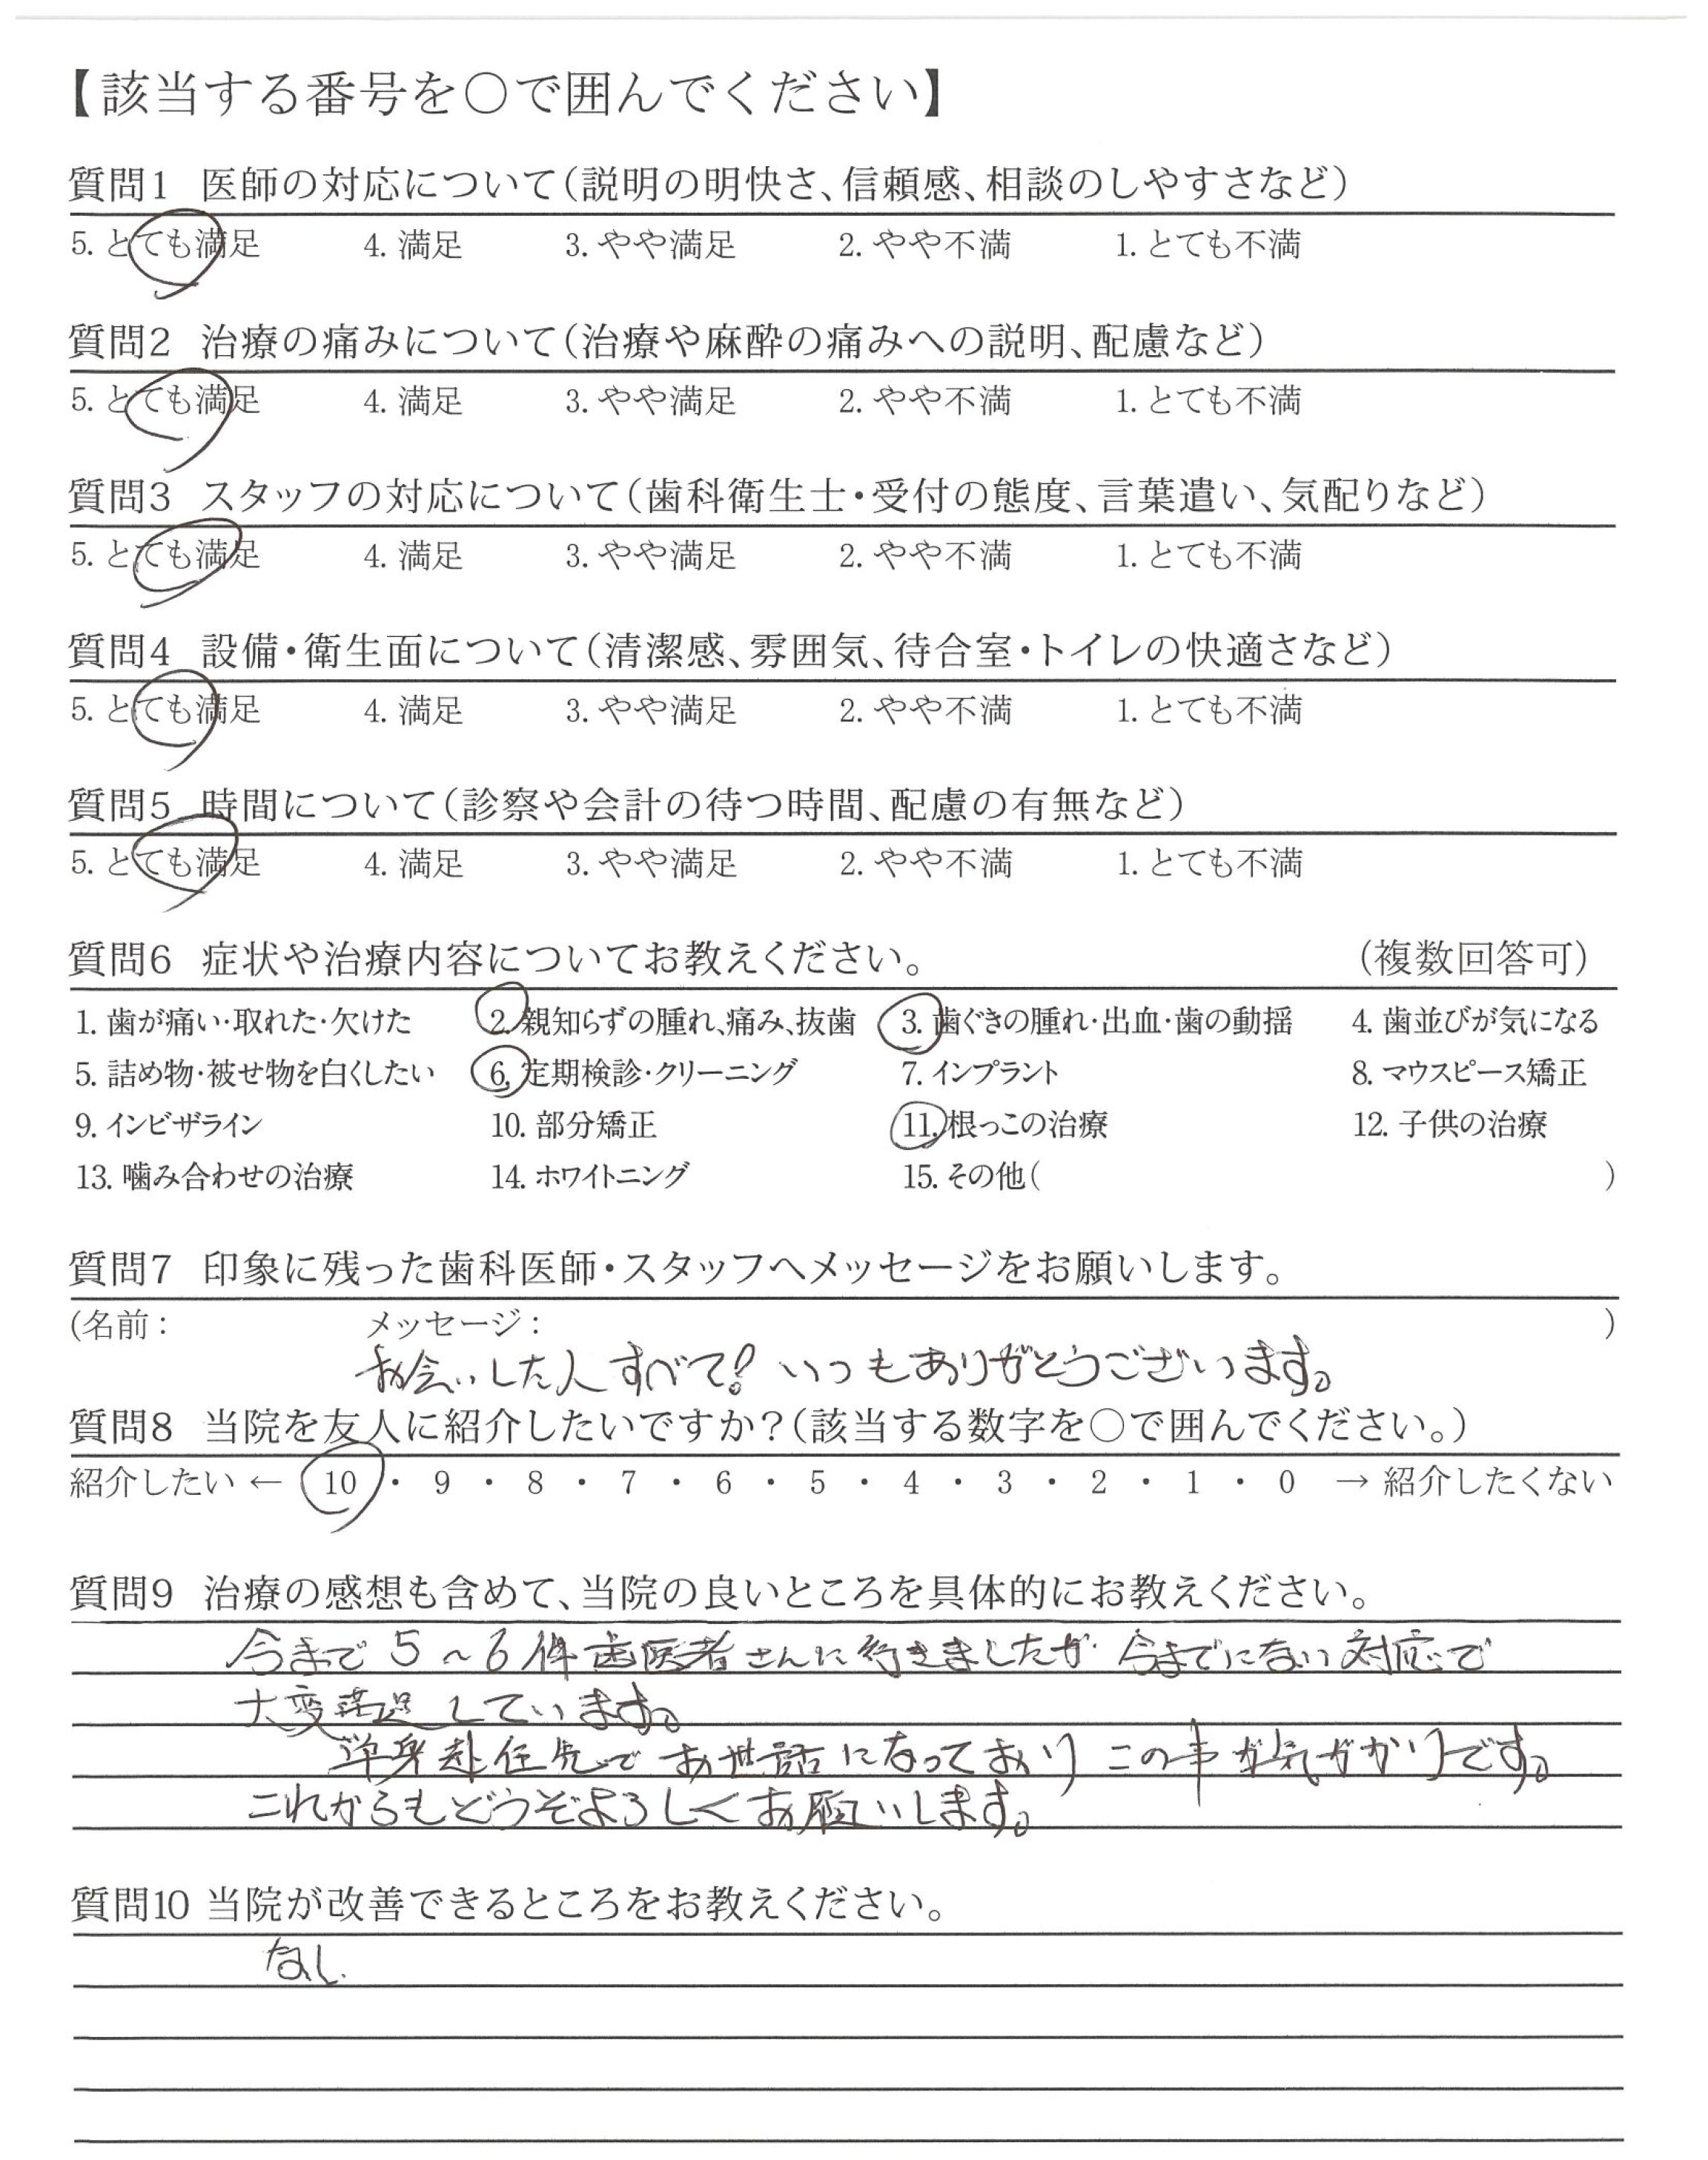 【該当する番号を○で囲んでください】
質問1 医師の対応について(説明の明快さ、信頼感、相談のしやすさなど)
5. とても満足 4. 満足 3. やや満足 2. やや不満 1. とても不満
質問2 治療の痛みについて(治療や麻酔の痛みへの説明、配慮など)
5. とても満足 4. 満足 3. やや満足 2. やや不満 1. とても不満
質問3 スタッフの対応について(歯科衛生士・受付の態度、言葉遣い、気配りなど)
5. とても満足 4. 満足 3. やや満足 2. やや不満 1. とても不満
質問4 設備・衛生面について(清潔感、雰囲気、待合室・トイレの快適さなど)
5. とても満足 4. 満足 3. やや満足 2. やや不満 1. とても不満
質問5 時間について(診察や会計の待つ時間、配慮の有無など)
5. とても満足 4. 満足 3. やや満足 2. やや不満 1. とても不満
質問6 症状や治療内容についてお教えください。 (複数回答可)
1. 歯が痛い・取れた・欠けた 2. 親知らずの腫れ、痛み、抜歯 3. 歯ぐきの腫れ・出血・歯の動揺 4. 歯並びが気になる
5. 詰め物・被せ物を白くしたい 6. 定期検診・クリーニング 7. インプラント 8. マウスピース矯正
9. インビザライン 10. 部分矯正 11. 根っこの治療 12. 子供の治療
13. 噛み合わせの治療 14. ホワイトニング 15. その他( )
質問7 印象に残った歯科医師・スタッフへメッセージをお願いします。
(名前: メッセージ: )
お会いした人すべて! いつもありがとうございます。
質問8 当院を友人に紹介したいですか?(該当する数字を○で囲んでください。)
紹介したい ← 10 ・ 9 ・ 8 ・ 7 ・ 6 ・ 5 ・ 4 ・ 3 ・ 2 ・ 1 ・ 0 → 紹介したくない
質問9 治療の感想も含めて、当院の良いところを具体的にお教えください。
今まで5~6件歯医者さんに行きましたが 今までにない対応で
大変満足しています。
単身赴任先でお世話になっており この事が気がかりです。
これからもどうぞよろしくお願いします。
質問10 当院が改善できるところをお教えください。
なし.